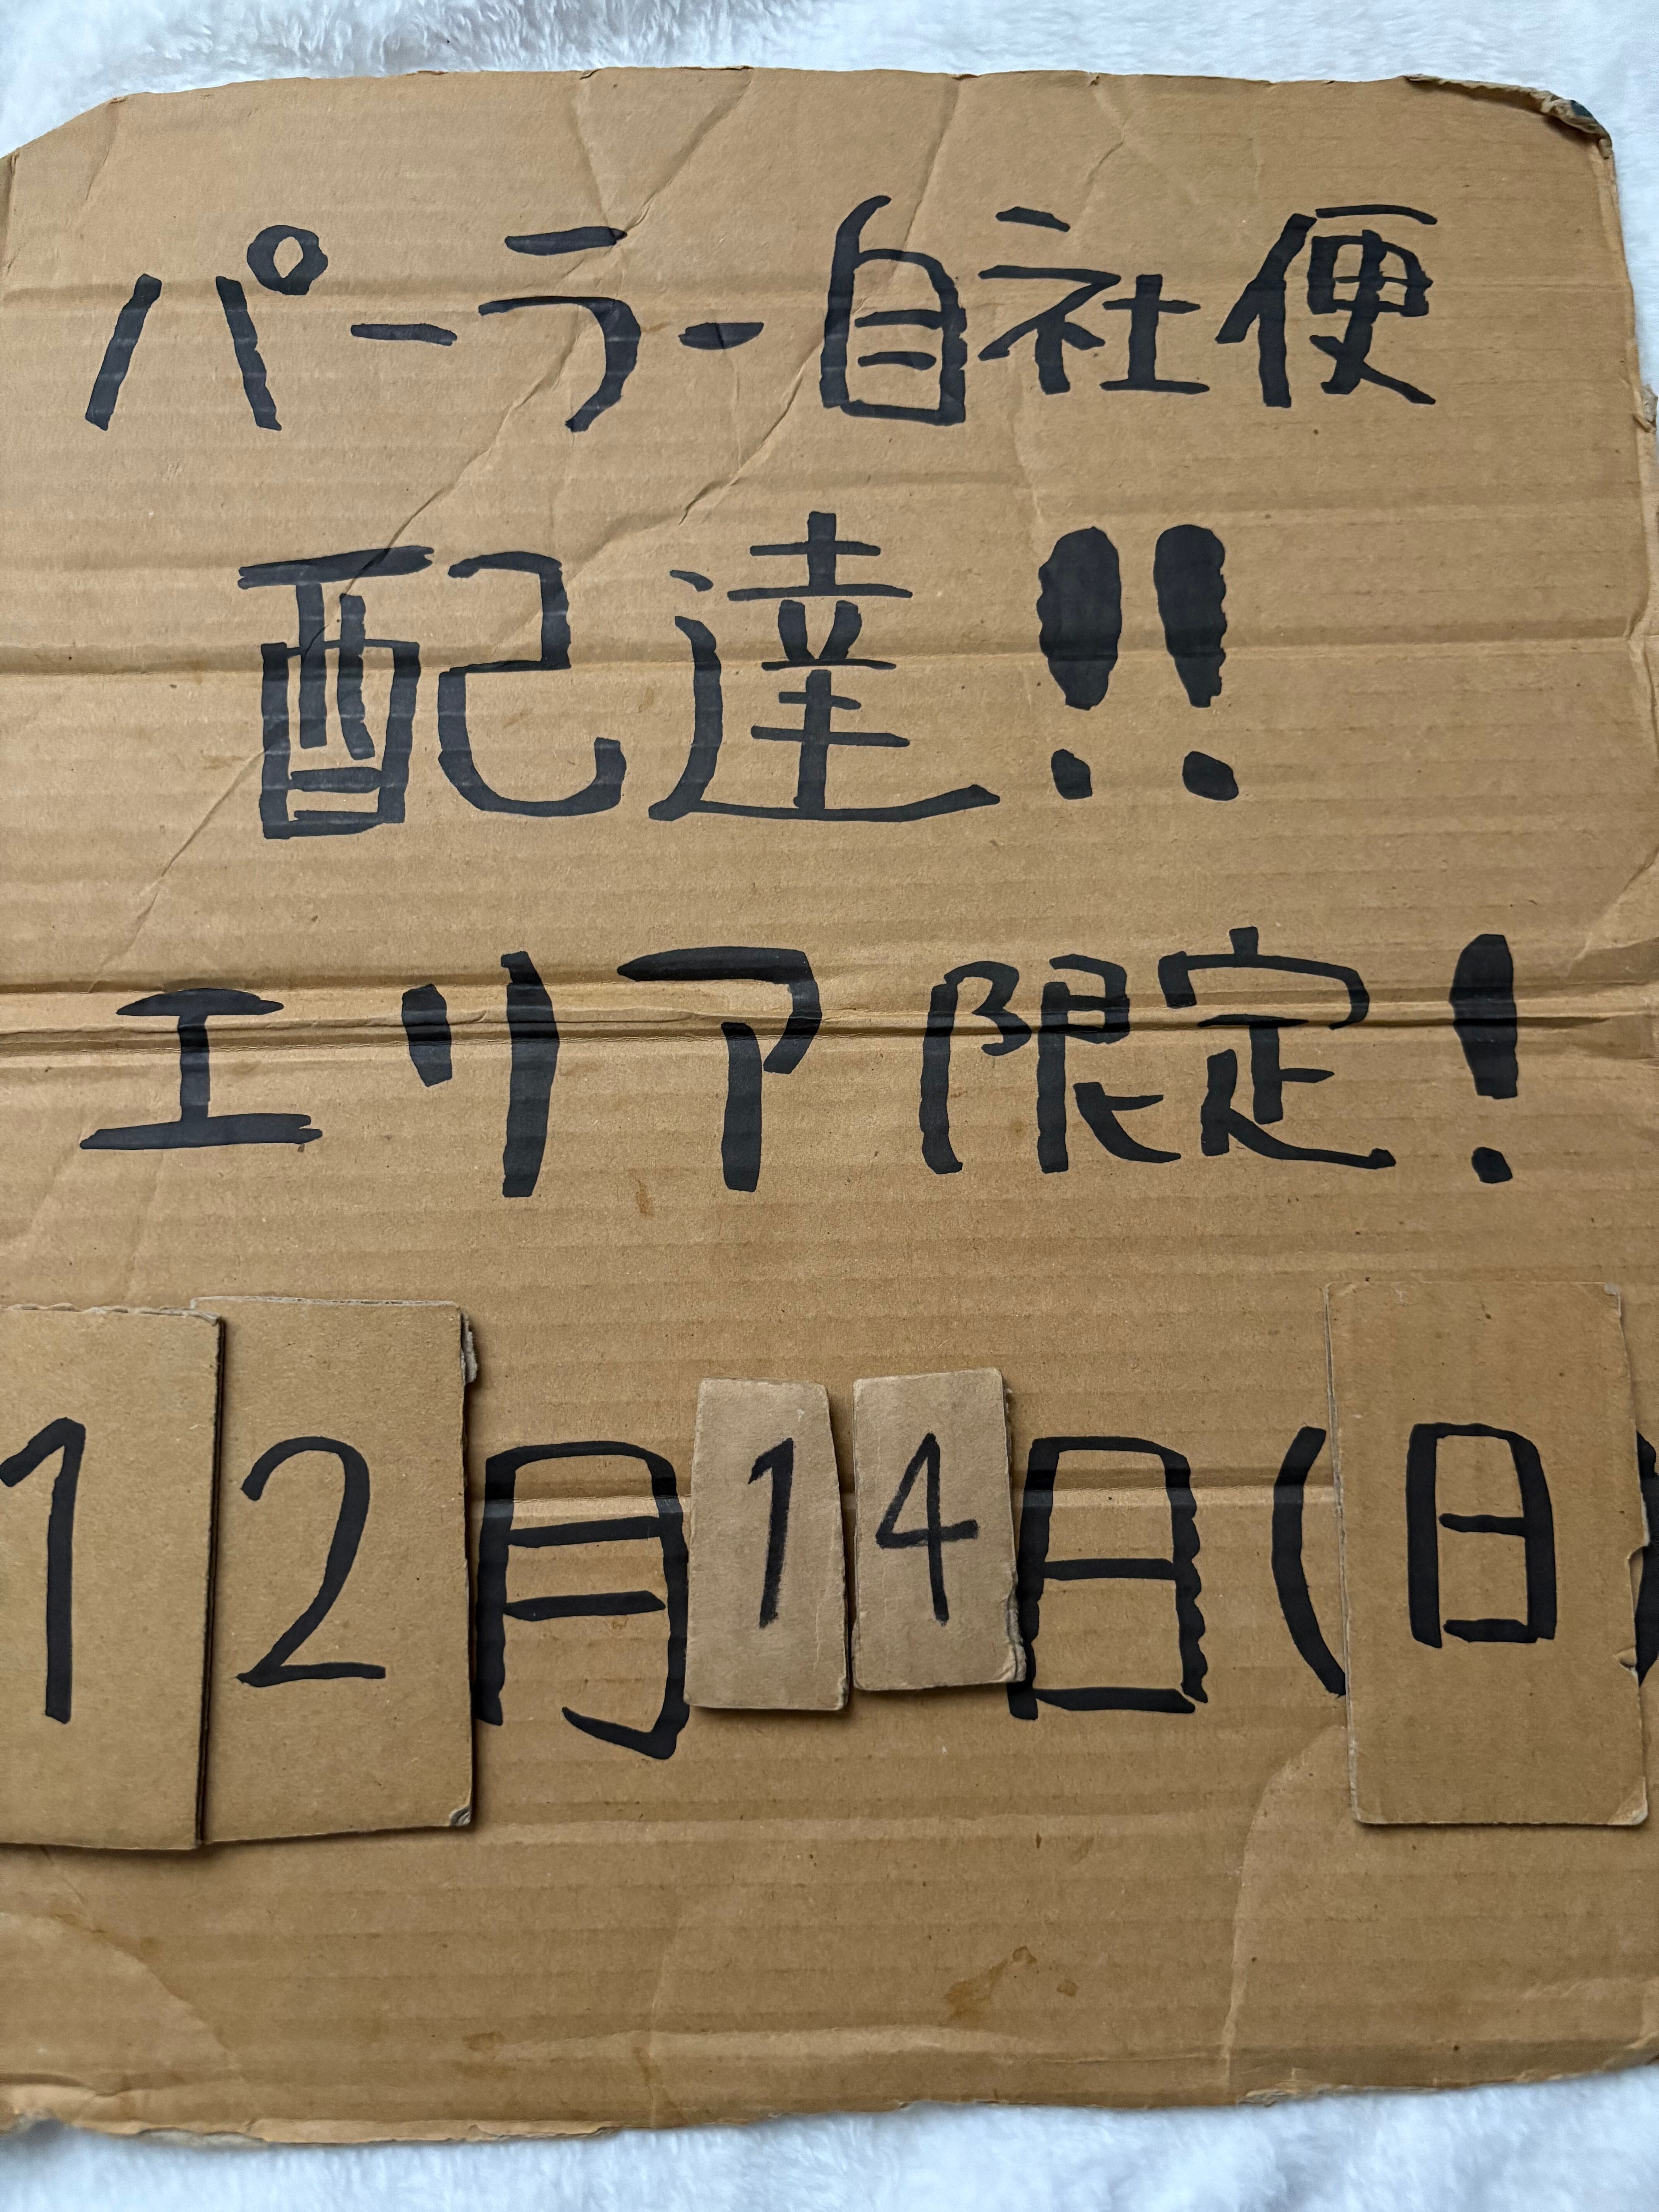 パーラー自社便
配達!!
エリア限定!
12月14日(日)